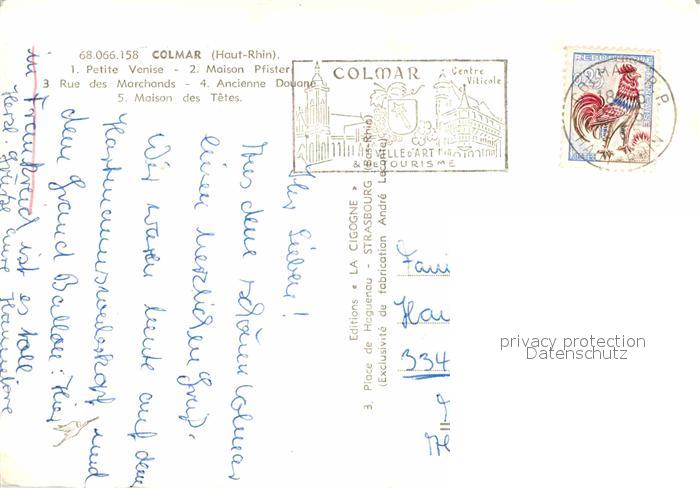 68.066.158 COLMAR (Haut-Rhin).
1. Petite Venise - 2. Maison Pfister
3 Rue des Marchands - 4. Ancienne Douane
5. Maison des Têtes.
COLMAR
Centre
Viticole
VILLE D'ART
& DE TOURISME
Ihr Lieben!
Aus dem schönen Colmar
einen herzlichen Gruß.
Wir waren heute auf dem
Hartmannsweilerkopf und
dem Grand Ballon. Hier
in Frankreich ist es toll
Herzl. Grüße eure Hannelore
Editions « LA CIGOGNE »
3, Place de Haguenau - STRASBOURG (Bas-Rhin)
(Exclusivité de fabrication André Leconte)
Fami
Han
334
privacy protection
Datenschutz